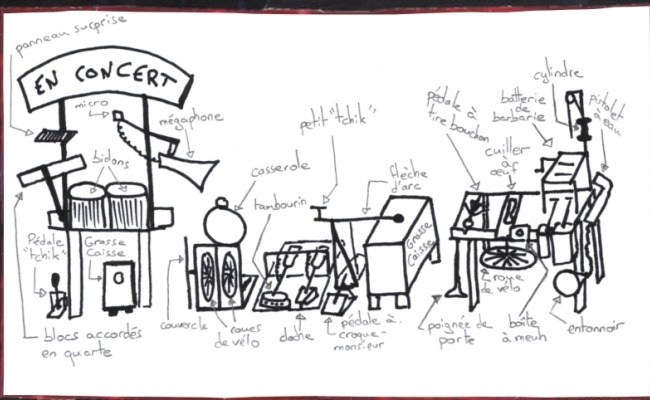 panneau surprise
EN CONCERT
micro
mégaphone
bidons
Pédale
"tchik"
Grosse
Caisse
blocs accordés
en quarte
casserole
tambourin
petit "tchik"
flèche
d'arc
Grosse
Caisse
couvercle
roues
de vélo
cloche
pédale à
croque-
monsieur
pédale à
tire bouchon
batterie
de
barbarie
cylindre
pistolet
à eau
cuiller
à
œuf
roue
de vélo
poignée de
porte
boîte
à meuh
entonnoir